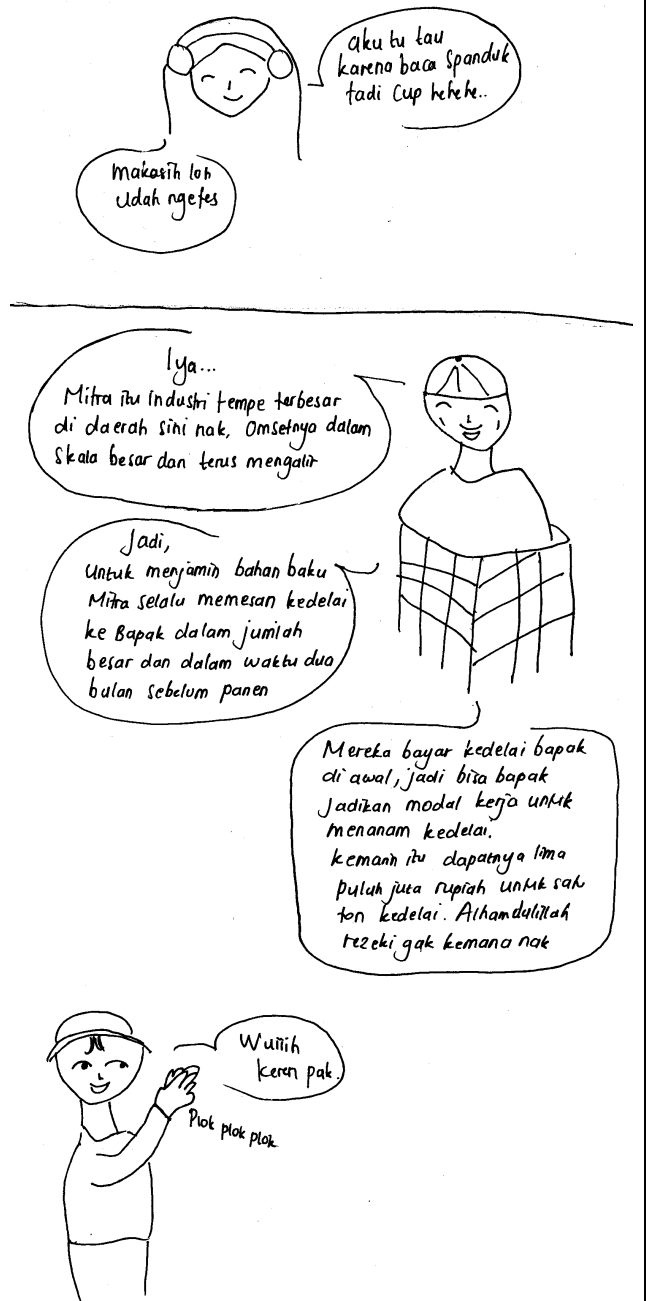 aku tu tau
karena baca spanduk
tadi Cup hehehe..
makasih loh
udah ngetes
Iya...
Mitra itu industri tempe terbesar
di daerah sini nak, Omsetnya dalam
skala besar dan terus mengalir
Jadi,
untuk menjamin bahan baku
Mitra selalu memesan kedelai
ke Bapak dalam jumlah
besar dan dalam waktu dua
bulan sebelum panen
Mereka bayar kedelai bapak
di awal, jadi bisa bapak
Jadikan modal kerja untuk
menanam kedelai.
kemarin itu dapatnya lima
puluh juta rupiah untuk satu
ton kedelai. Alhamdulillah
rezeki gak kemana nak
Wuiiih
keren pak.
Plok plok plok